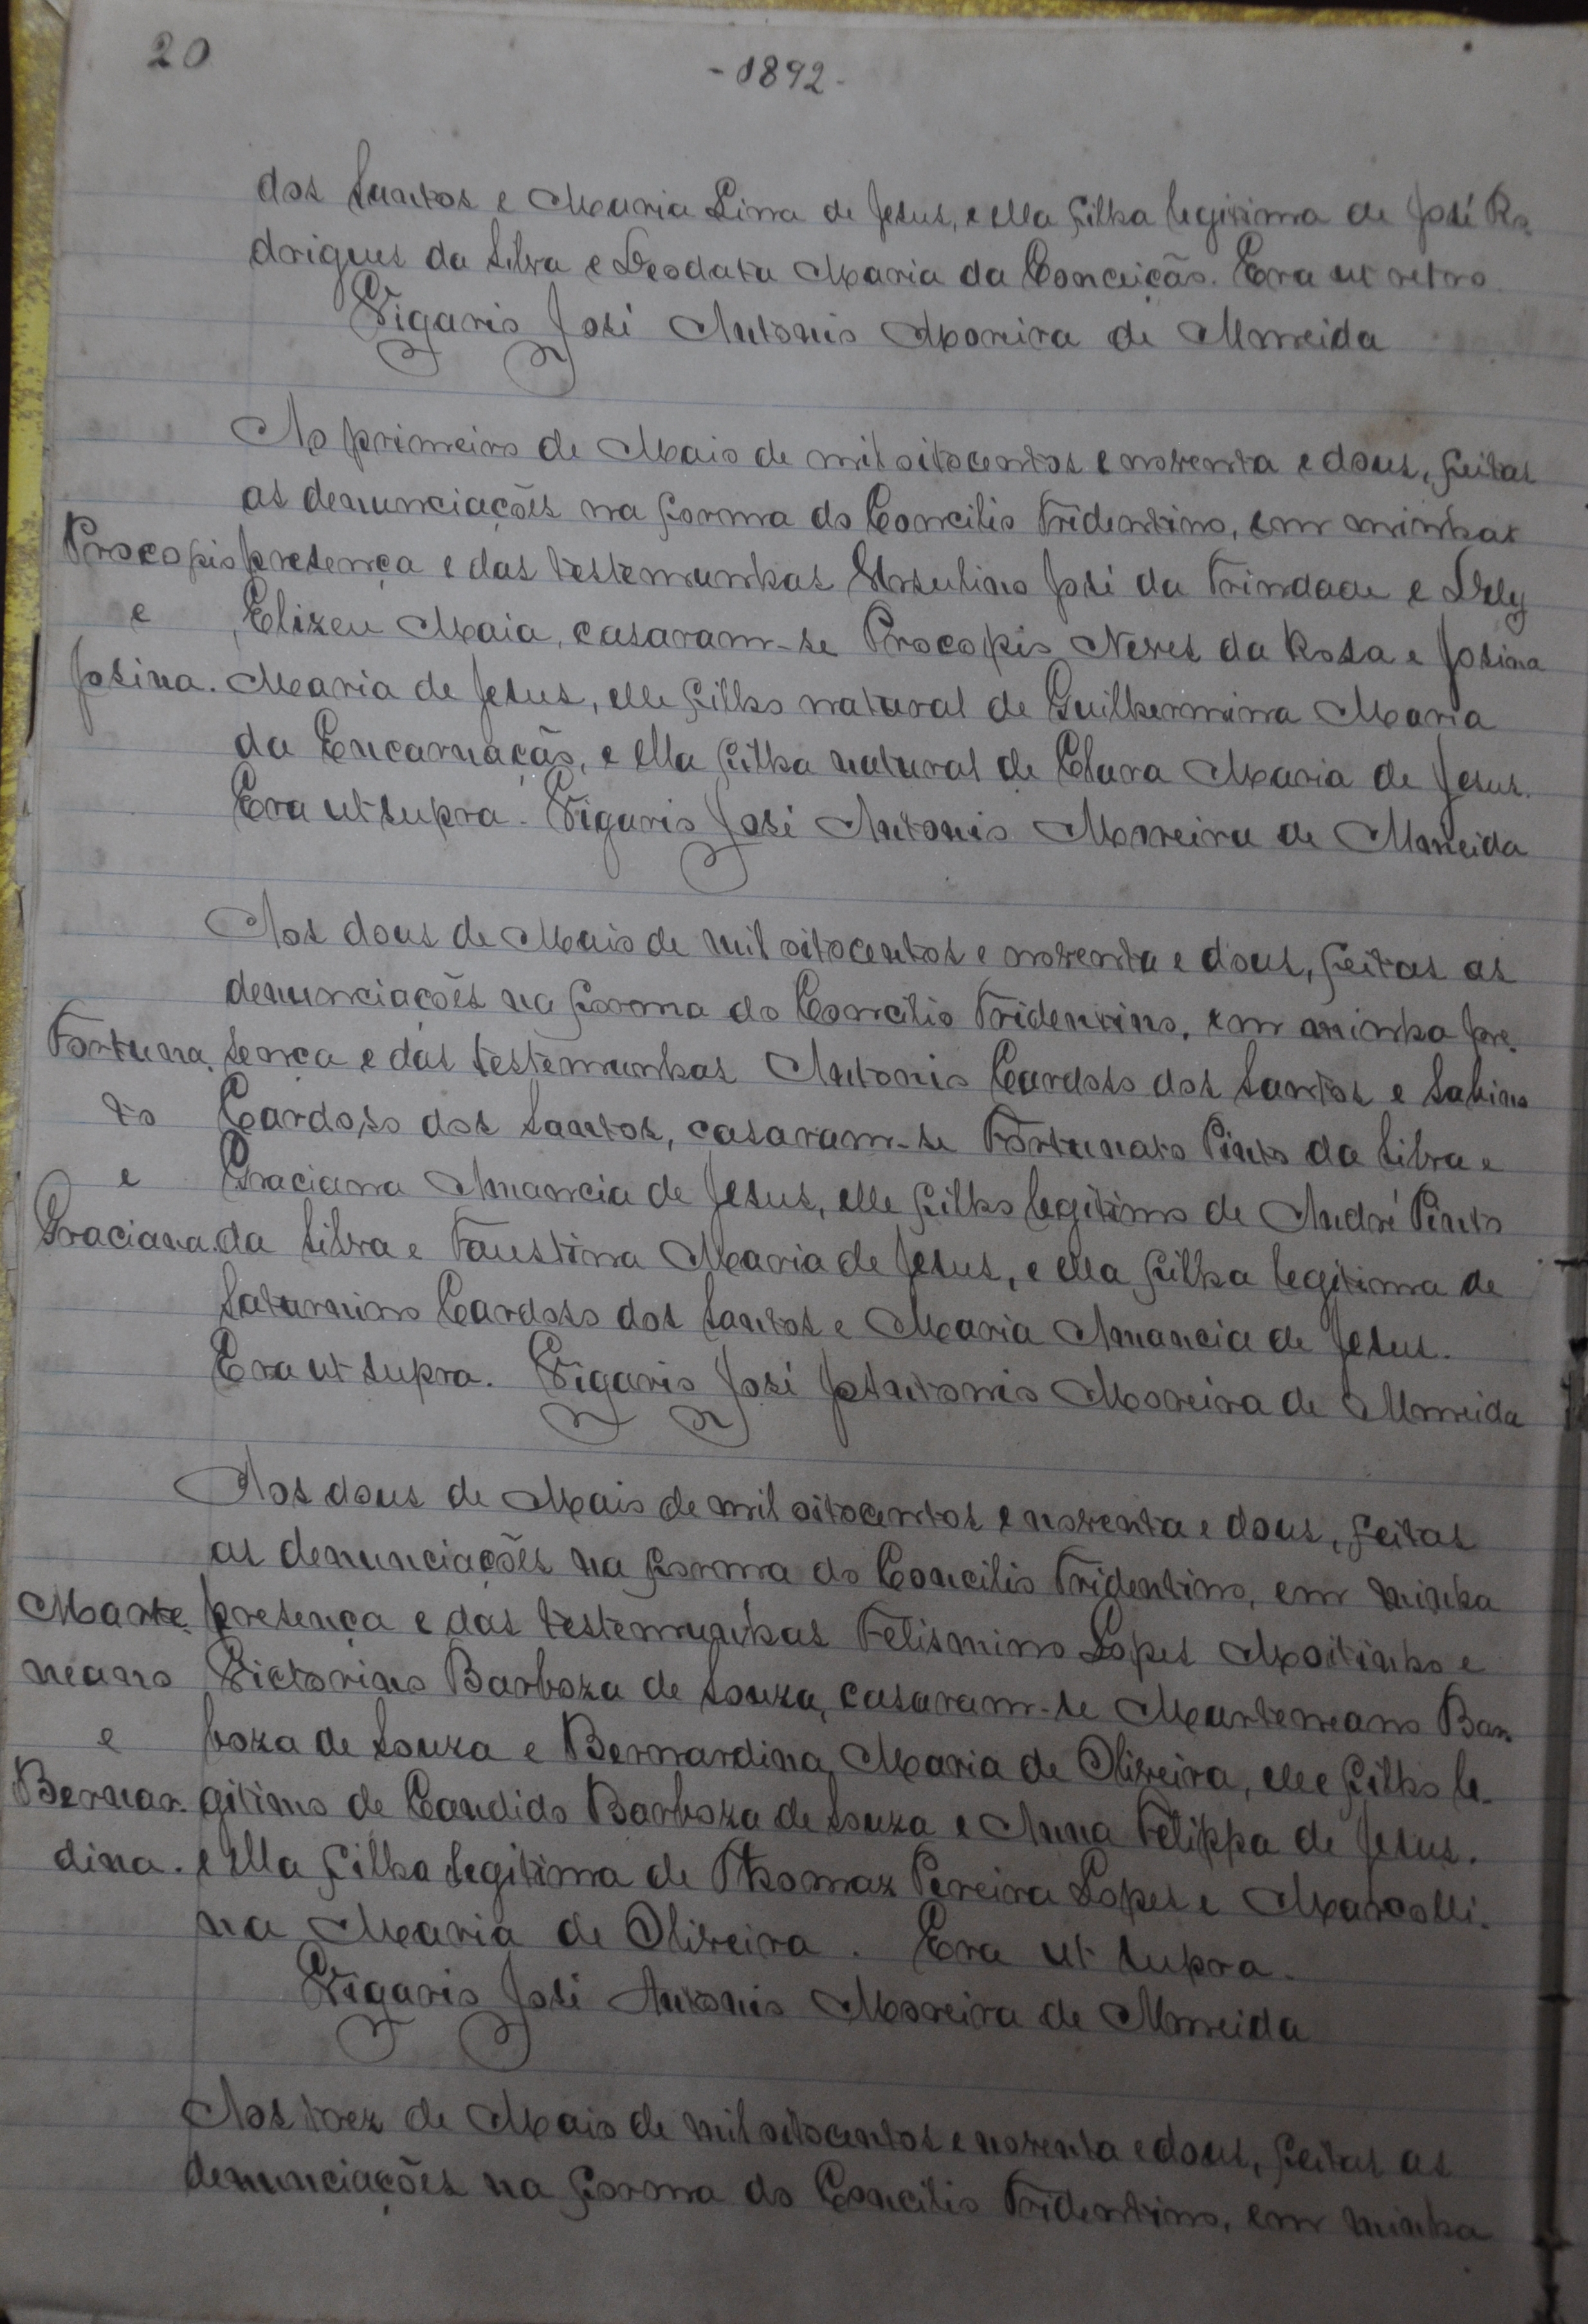 20
- 1892 -
dos Santos e Maria Lina de Jesus, e ella filha legitima de José Ro-
drigues da Silva e Deodata Maria da Conceição. Era ut retro.
Vigario José Antonio Moreira de Almeida
Ao primeiro de Maio de mil oitocentos e noventa e dous, feitas
as denunciações na forma do Concilio Tridentino, em minhas
Procopio presença e das testemunhas Ursulino José da Trindade e
e Elizeu Maia, casaram-se Procopio Neves da Rosa e Josina
Josina. Maria de Jesus, elle filho natural de Guilhermina Maria
da Encarnação, e ella filha natural de Clara Maria de Jesus.
Era ut supra. Vigario José Antonio Moreira de Almeida
Aos dous de Maio de mil oitocentos e noventa e dous, feitas as
denunciações na forma do Concilio Tridentino, em minha pre-
Fortuna- sença e das testemunhas Antonio Cardoso dos Santos e Sabino
to Cardoso dos Santos, casaram-se Fortunato Pinto da Silva e
e Graciana Amancia de Jesus, elle filho legitimo de André Pinto
Graciana. da Silva e Faustina Maria de Jesus, e ella filha legitima de
Saturnino Cardoso dos Santos e Maria Amancia de Jesus.
Era ut supra. Vigario José Antonio Moreira de Almeida
Aos dous de Maio de mil oitocentos e noventa e dous, feitas
as denunciações na forma do Concilio Tridentino, em minha
Marte- presença e das testemunhas Felismino Lopes Moitinho e
neano Victorino Barboza de Souza, casaram-se Marteneano Bar-
e boza de Souza e Bernardina Maria de Oliveira, elle filho le-
Bernar- gitimo de Candido Barboza de Souza e Anna Felippa de Jesus.
dina. e ella filha legitima de Thomaz Pereira Lopes e Marcolli-
na Maria de Oliveira. Era ut supra.
Vigario José Antonio Moreira de Almeida
Aos trez de Maio de mil oitocentos e noventa e dous, feitas as
denunciações na forma do Concilio Tridentino, em minha